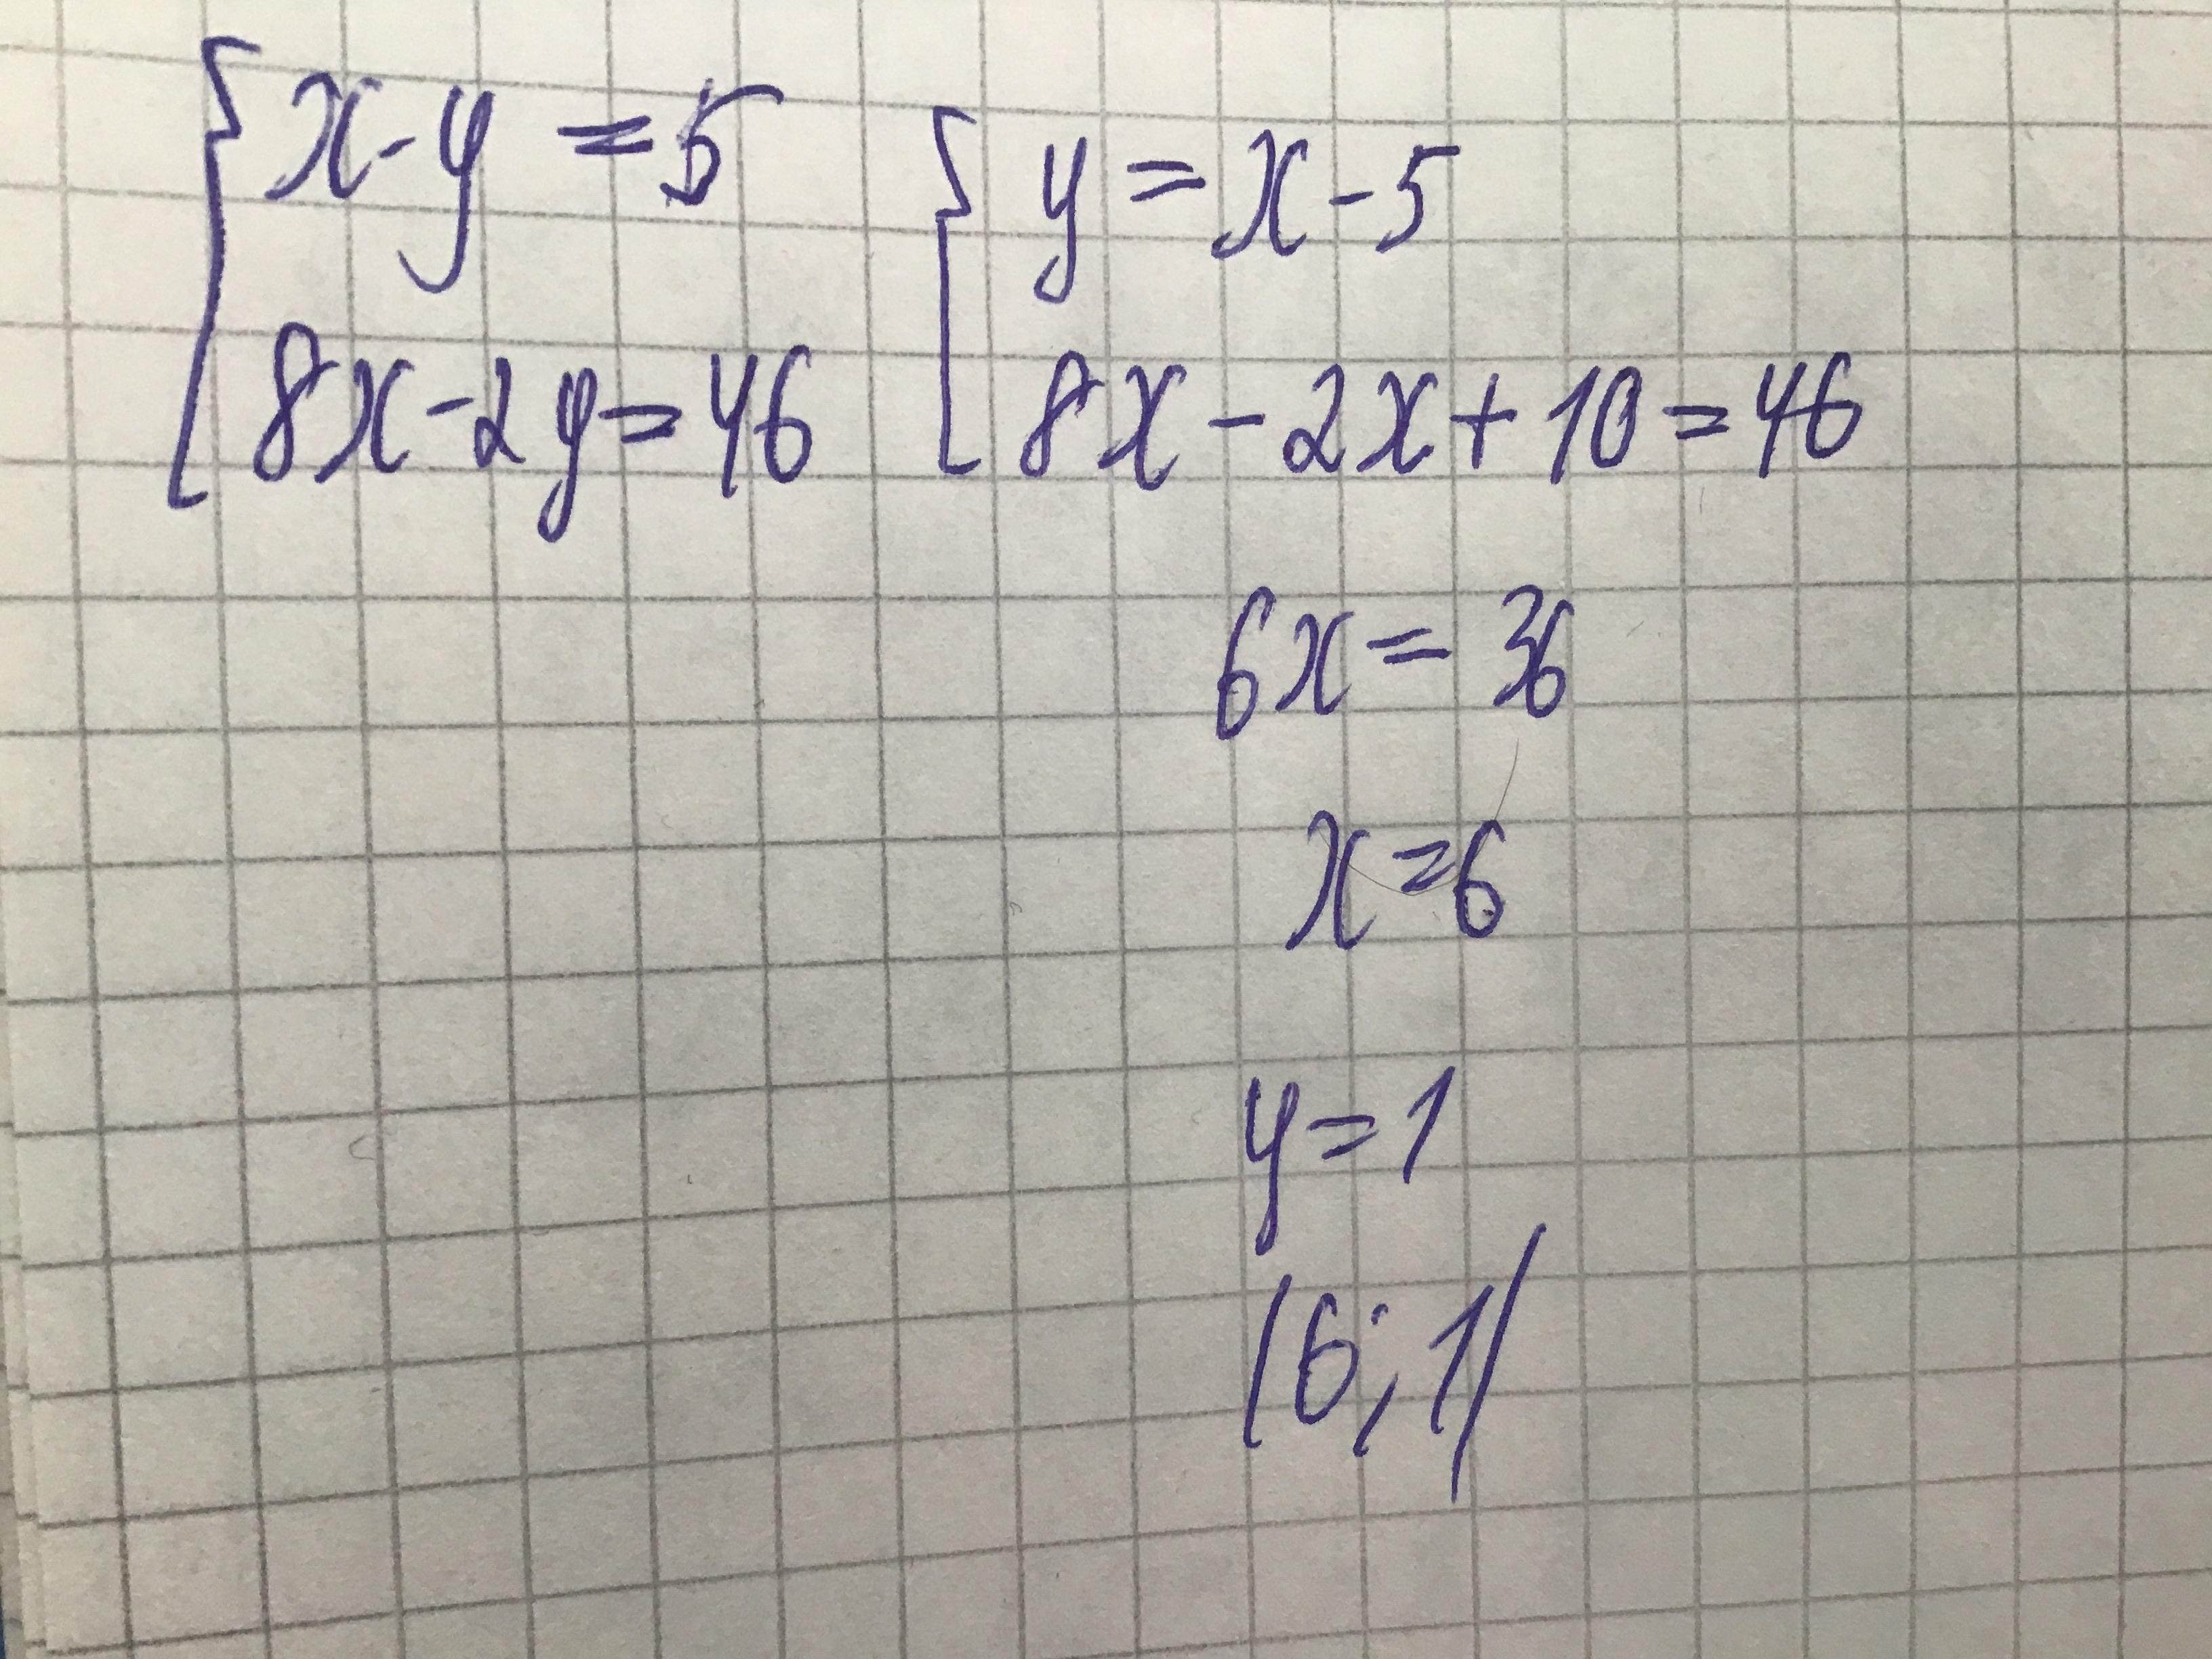 x-y=5
8x-2y=46
y=x-5
8x-2x+10=46
6x=36
x=6
y=1
(6;1)